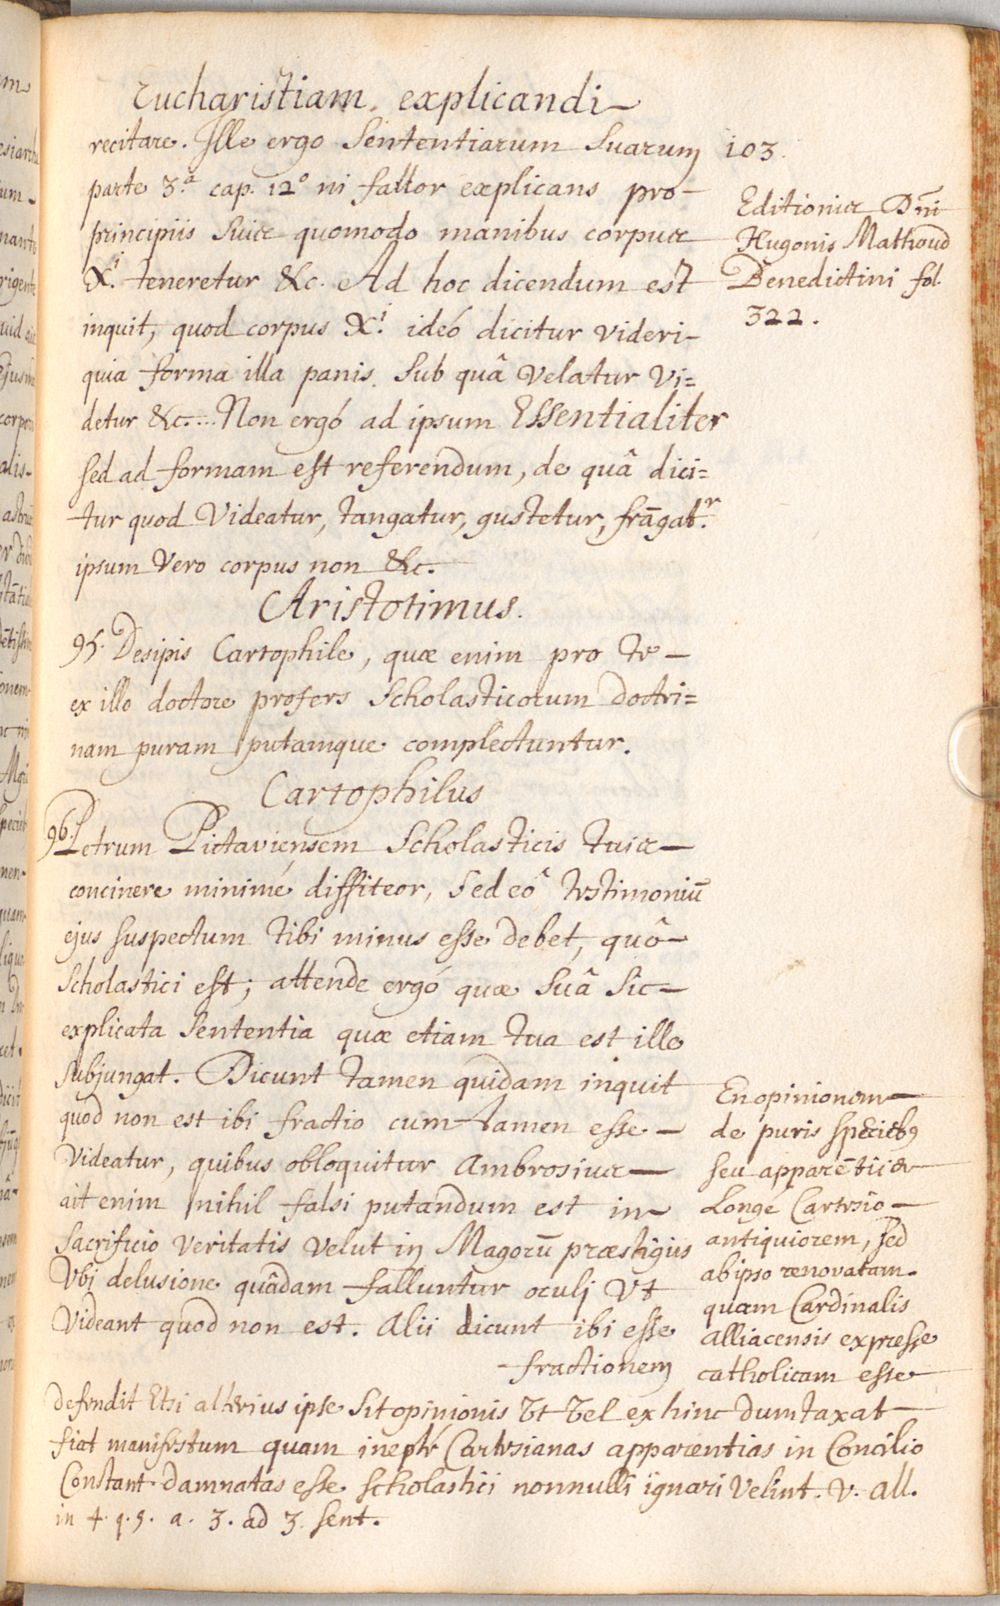 Eucharistiam explicandi
103.
recitare. Ille ergo Sententiarum Suarum
parte 3.ª cap. 12º ni fallor explicans pro
principiis Suis quomodo manibus corpus
Xi. teneretur &c. Ad hoc dicendum est
inquit, quod corpus Xi. ideó dicitur videri
quia forma illa panis Sub quâ Velatur Vi=
detur &c.... Non ergó ad ipsum Essentialiter
sed ad formam est referendum, de quâ dici=
tur quod Videatur, tangatur, gustetur, frāgat.r
ipsum Vero corpus non &c.
Editionis Dn̄i
Hugonis Mathoud
Benedictini fol.
322.
Aristotimus.
95. Desipis Cartophile, quæ enim pro te
ex illo doctore profers Scholasticorum doctri=
nam puram putamque complectuntur.
Cartophilus
96. Petrum Pictaviensem Scholasticis tuis
concinere minimé diffiteor, Sed eô testimoniū
ejus suspectum tibi minus esse debet, quô
Scholastici est; attende ergó quæ Suâ Sic
explicata Sententia quæ etiam tua est ille
Subjungat. Dicunt tamen quidam inquit
quod non est ibi fractio cum tamen esse
Videatur, quibus obloquitur Ambrosius
ait enim nihil falsi putandum est in
Sacrificio Veritatis Velut in Magorū præstigiis
Vbi delusione quâdam falluntur oculi Vt
Videant quod non est. Alii dicunt ibi esse
fractionem
En opinionem
de puris Speciebꝰ
seu apparētiis
Longé Cartesio
antiquiorem, Sed
ab ipso renovatam
quam Cardinalis
alliacensis expresse
catholicam esse
defendit Etsi alterius ipse Sit opinionis Vt Vel ex hinc dumtaxat
fiat manifestum quam ineptè Cartesianas apparentias in Concilio
Constant. damnatas esse scholastici nonnulli ignari Velint. V. all.
in 4. q. 5. a. 3. ad 3. sent.